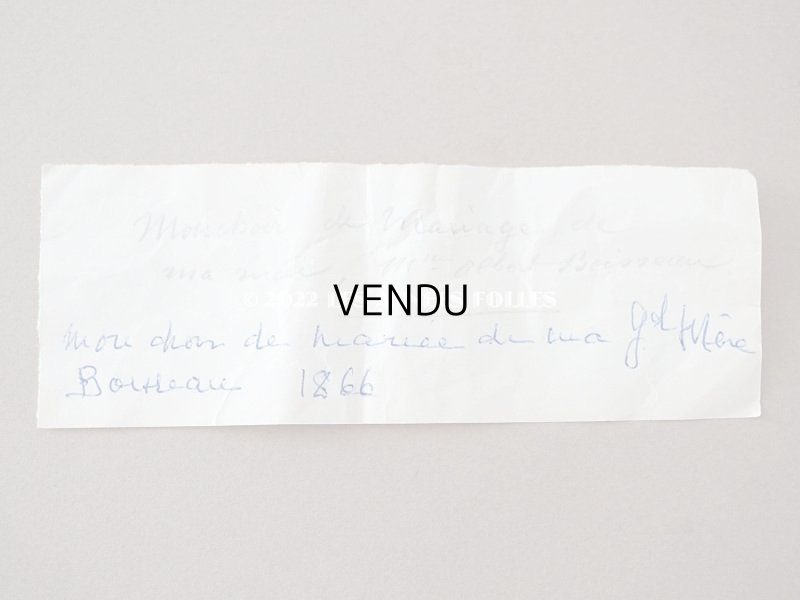 Mouchoir de Mariage de
ma mère, Mme Boisseau
© 2022 FOLLES
VENDU
Mouchoir de mariée de ma gd Mère
Boisseau 1866